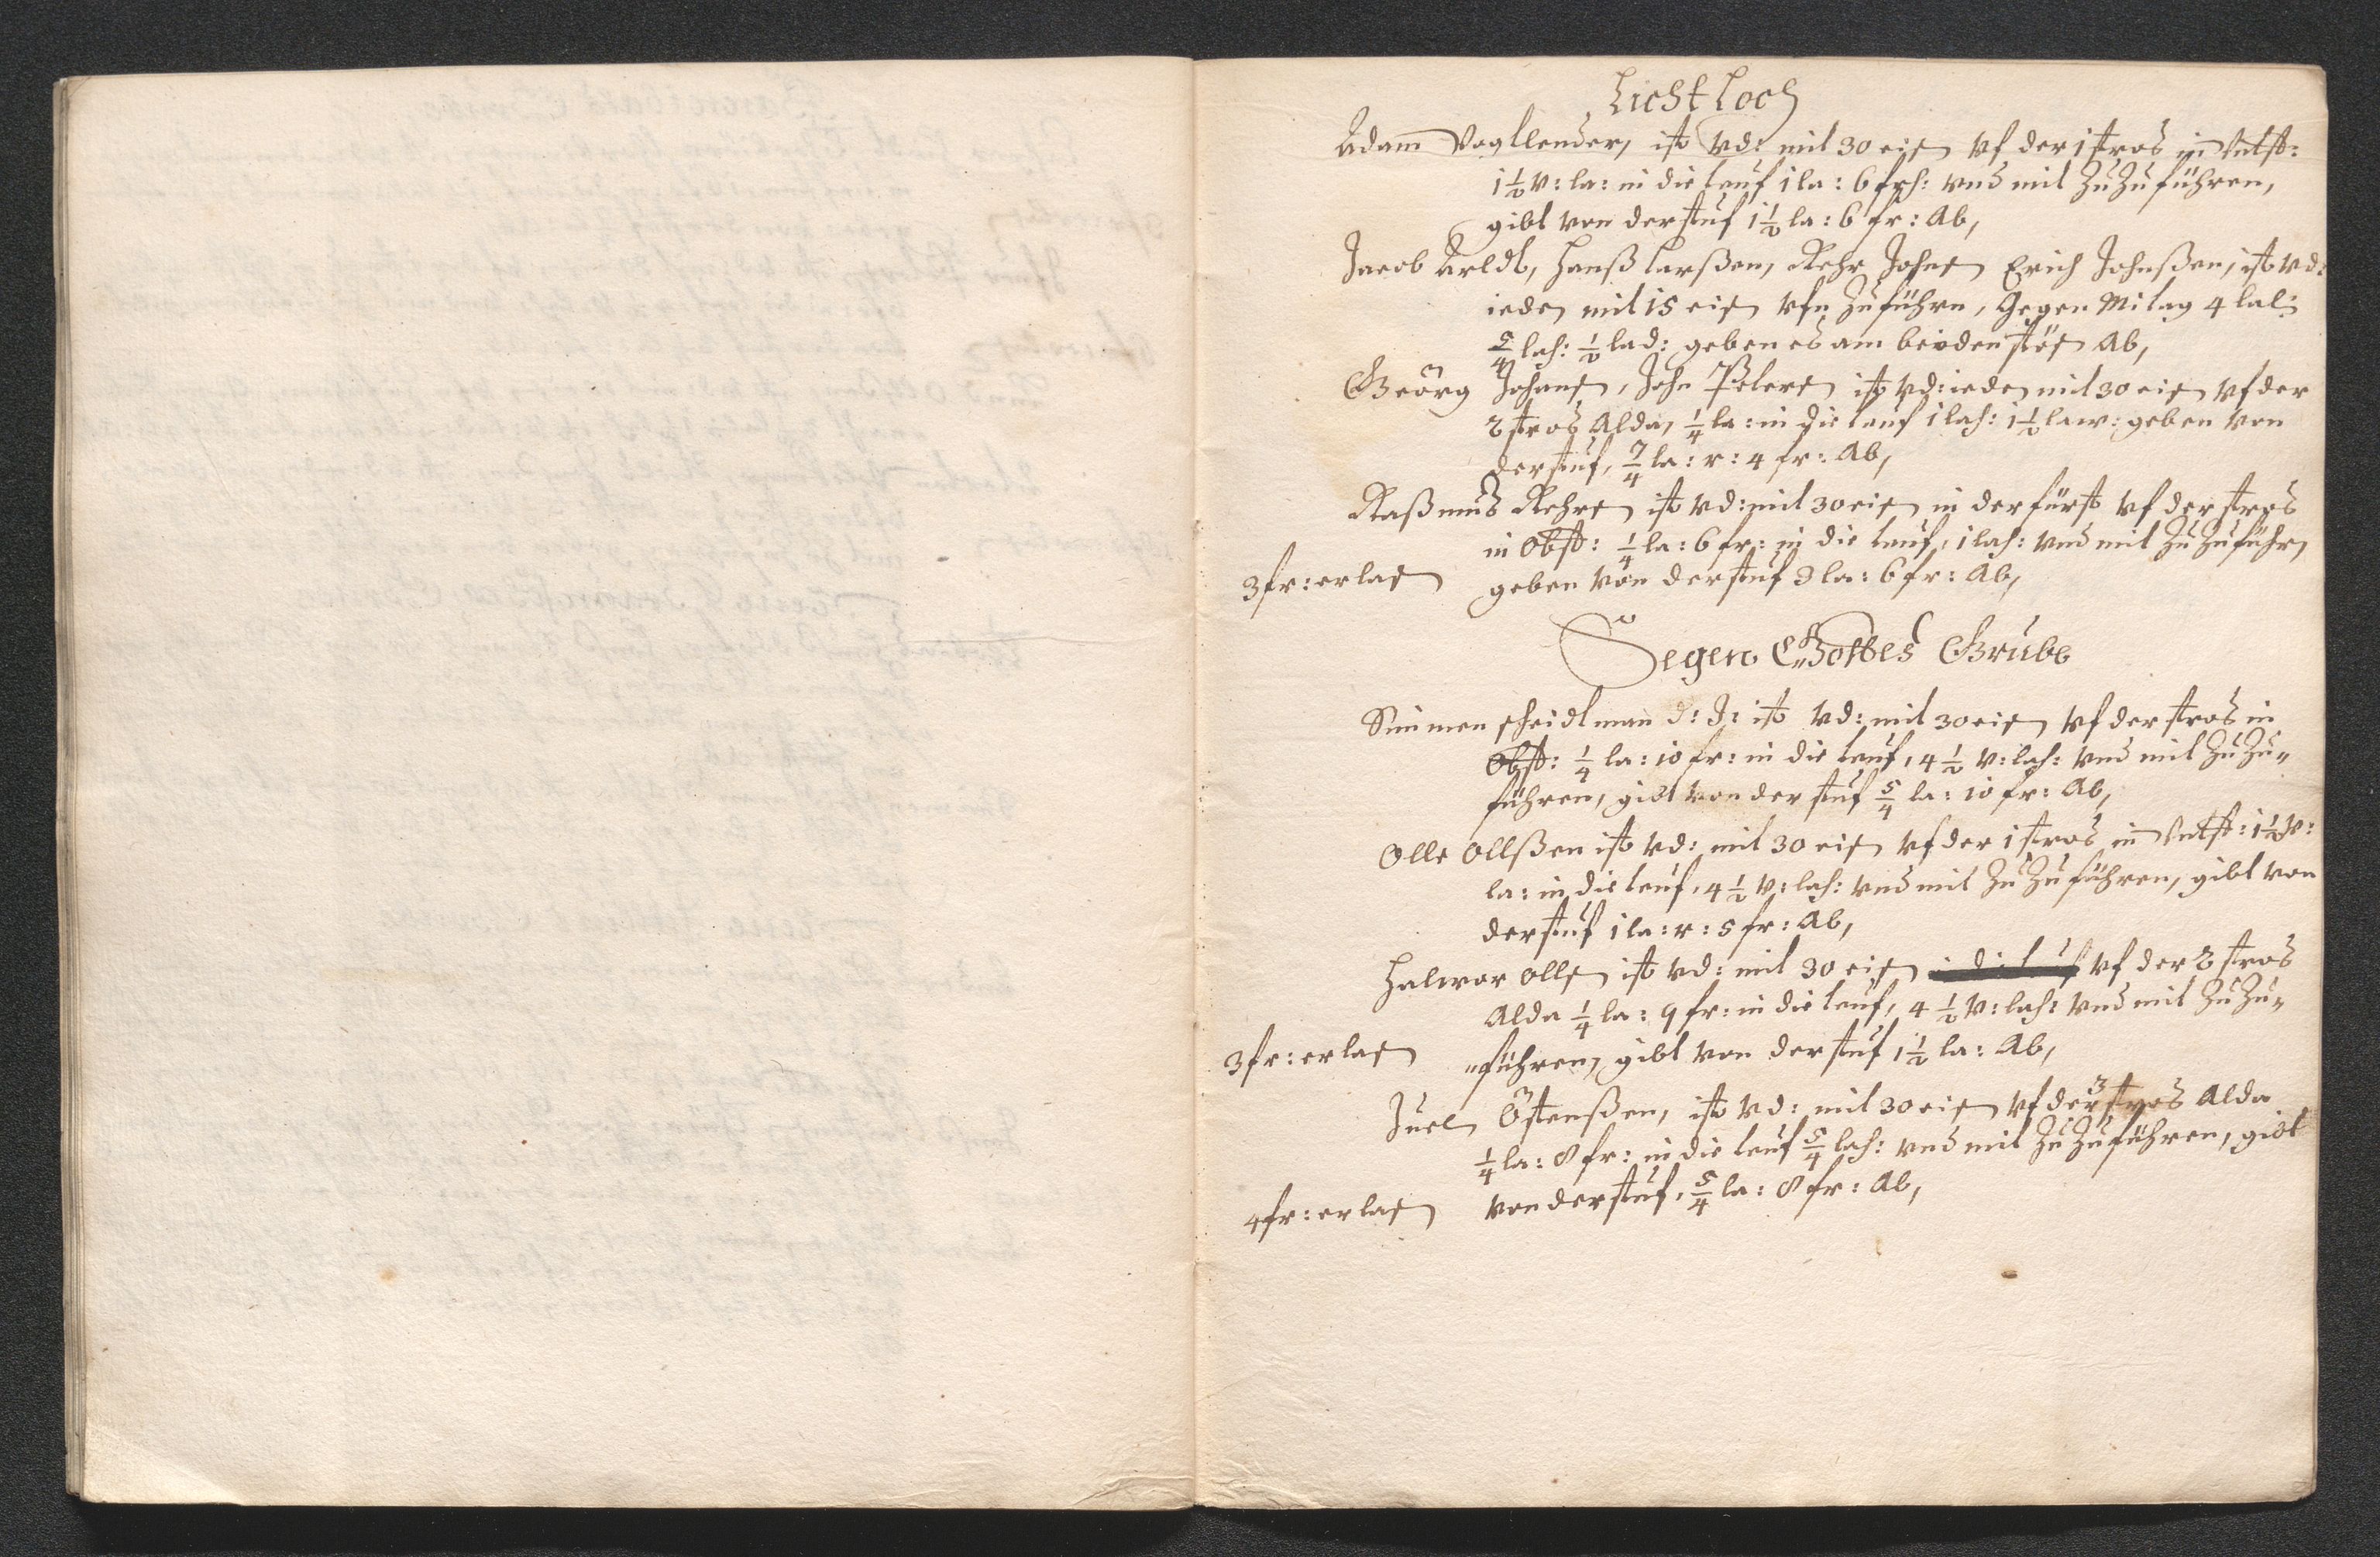 Licht Loch
Adam Vogtlender, ist vd: mit 30 eis vf der 1 stros in
1½ v: la: in die teuf 1 la: 6 fr: vnd mit Zu Zuführen,
gibt von der stuf 1½ la: 6 fr: Ab,
Jacob Arldt, Hanß Larßen, Rehr Johns Erich Johnßen, ist vd:
ieder mit 15 eis vfn Zuführn, Gegen Mitag 4 lat:
5/4 lach: ½ lad: geben es am beiden Ab,
Geörg Johans, John Peters ist vd: ieder mit 30 eis vf der
2 stros Alda, ¼ la: in die teuf 1 lach: 1½ law: geben von
der stuf, 7/4 la: r: 4 fr: Ab,
Raßmus Rehrs ist vd: mit 30 eis in der fürst vf der stros
in Obst: ¼ la: 6 fr: in die teuf, 1 lach: vnd mit Zu Zuführn
3 fr: erlas geben von der stuf 3 la: 6 fr: Ab,
Segen Gottes Grube
Simmen scheidtman d: J: ist vd: mit 30 eis vf der stros in
Obst: ¼ la: 10 fr: in die teuf, 4½ v: lach: vnd mit Zu Zu„
führen, gibt von der stuf 5/4 la: 10 fr: Ab,
Olle Ollßen ist vd: mit 30 eis vf der 1 stros in 1½ v:
la: in die teuf, 4½ v: lach: vnd mit Zu Zuführen, gibt von
der stuf 1 la: r: 5 fr: Ab,
Halwor Olls ist vd: mit 30 eis vf der 2 stros
Alda ¼ la: 9 fr: in die teuf, 4½ v: lach: vnd mit Zu Zu„
3 fr: erlas „führen, gibt von der stuf 1½ la: Ab,
Juel Östenßen, ist vd: mit 30 eis vf der 3 stros Alda
¼ la: 8 fr: in die teuf 5/4 lach: vnd mit Zu Zuführen, gibt
4 fr: erlas von der stuf, 5/4 la: 8 fr: Ab,